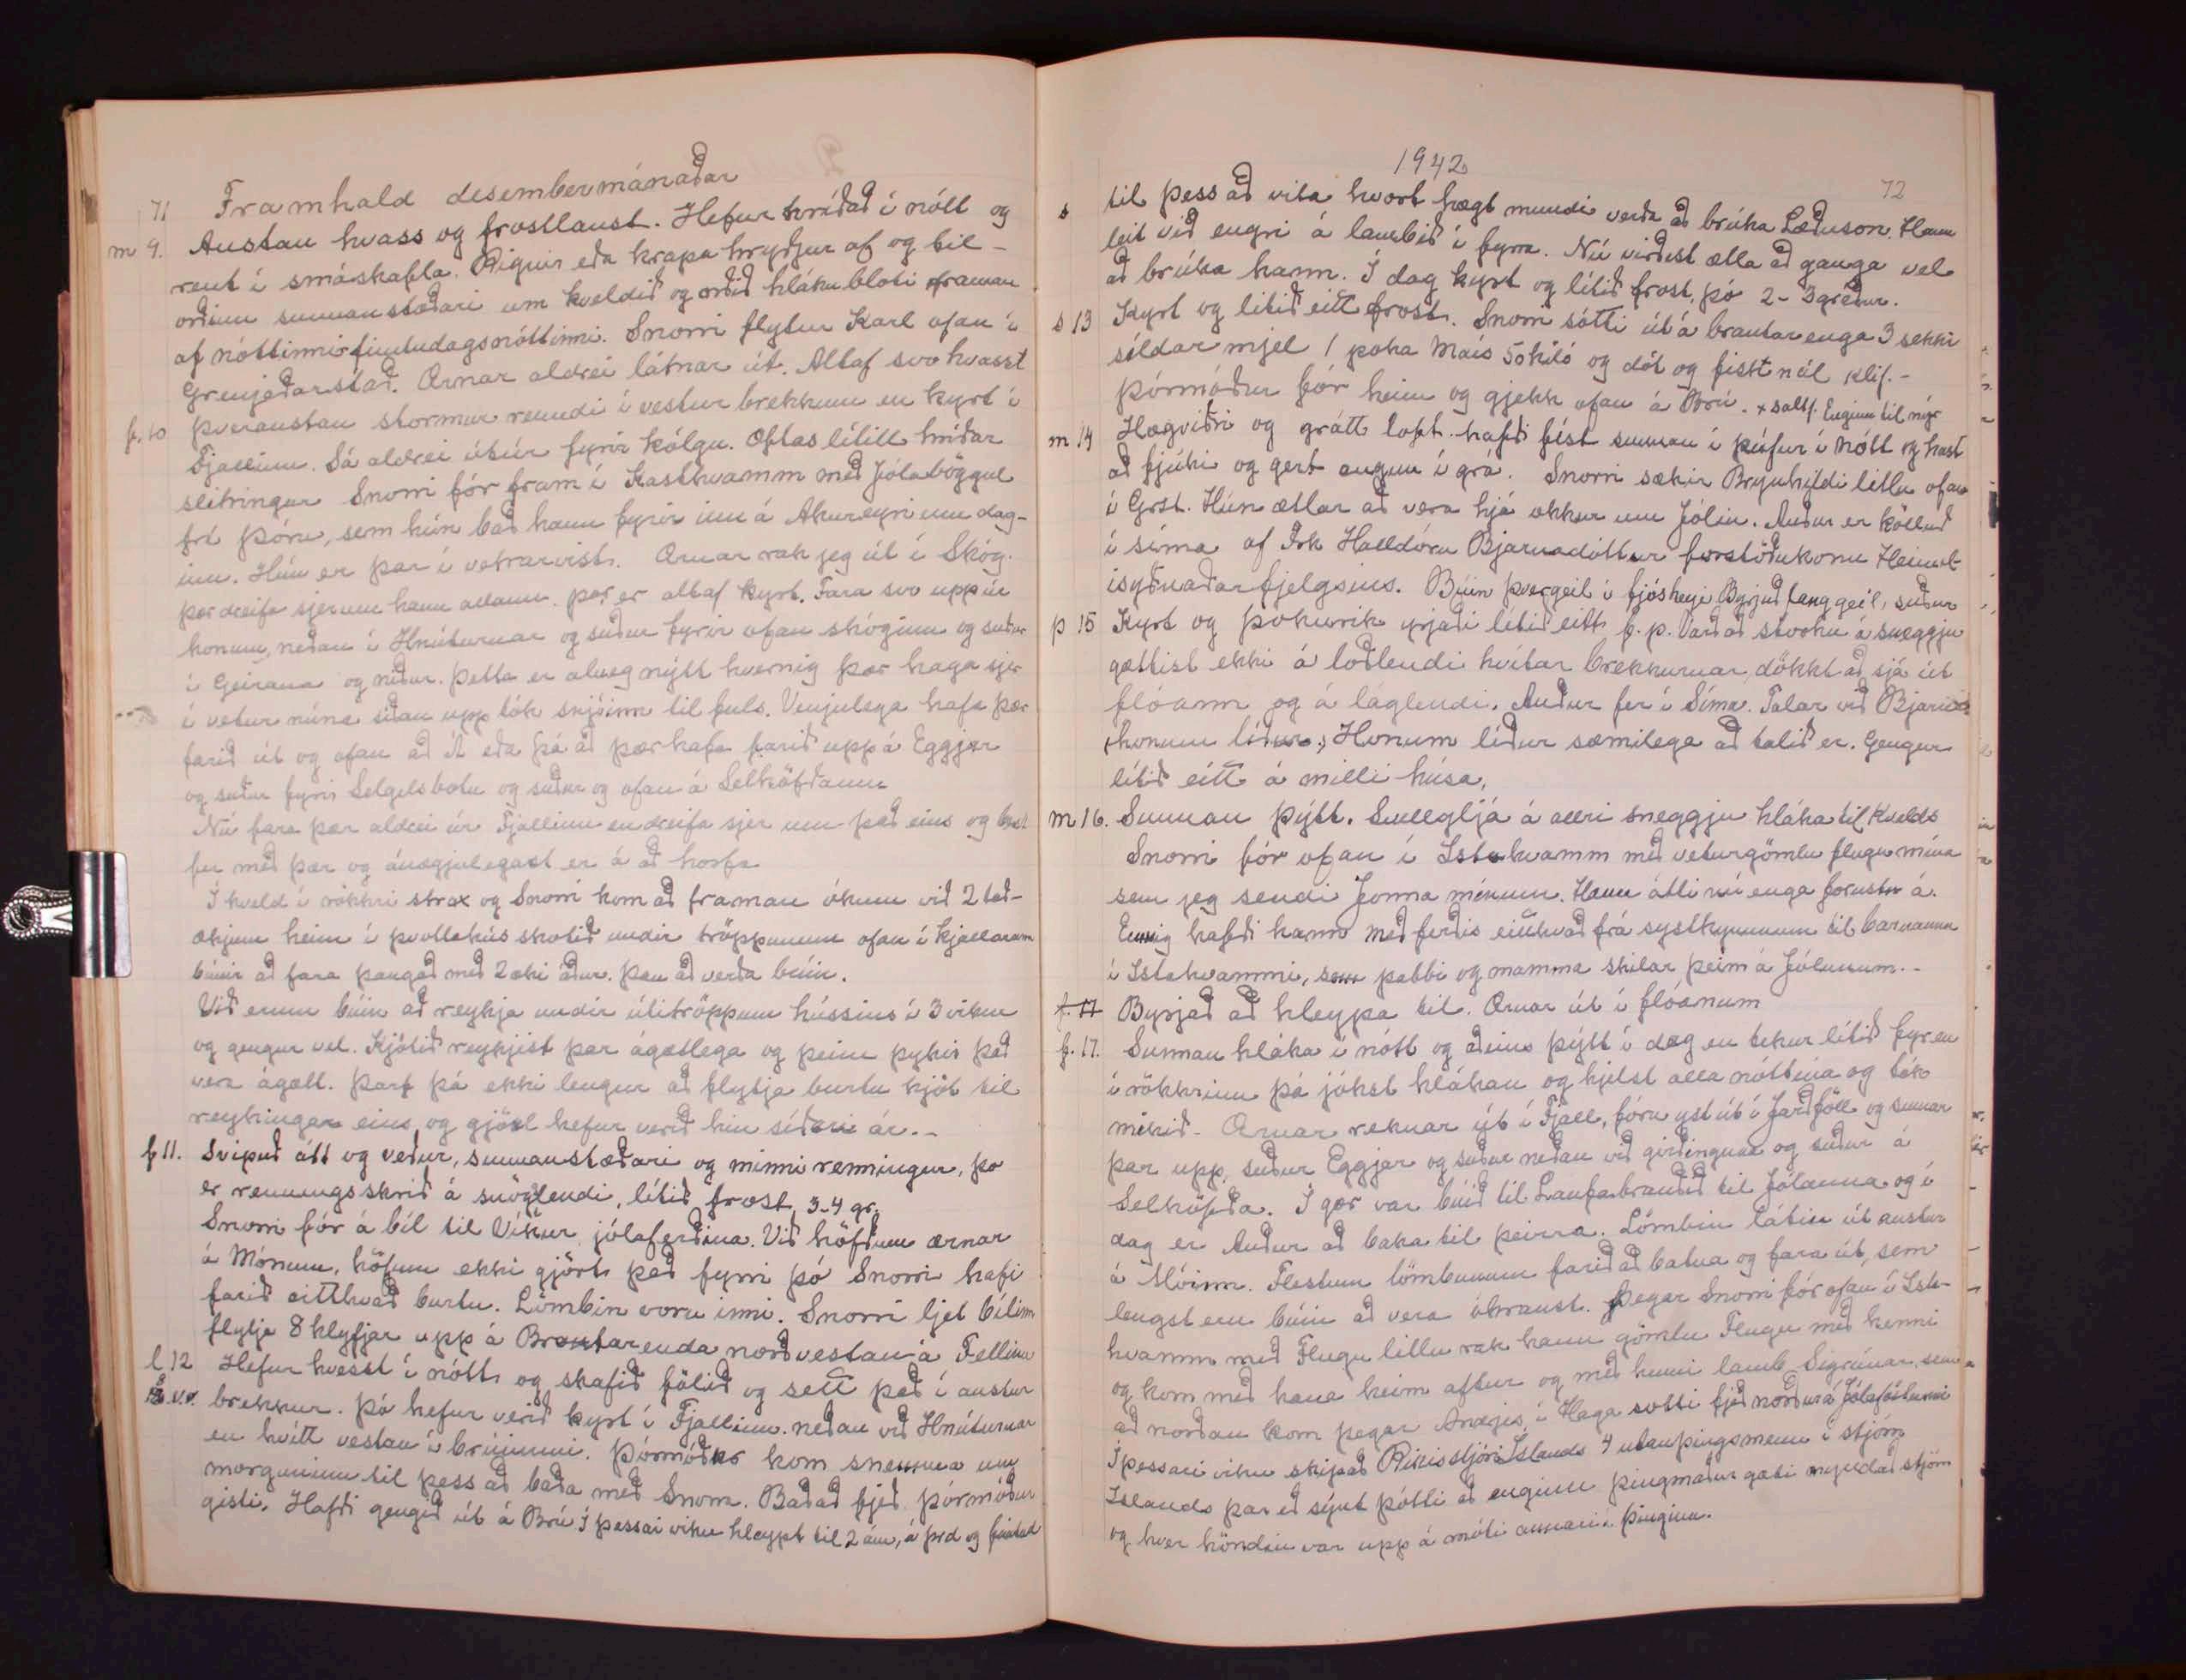 71 Framhald desembermánaðar
m 9. Austan hvass og frostlaust. Hefur hríðað í nótt og
rent í smáskafla. Rignir eða krapa hryðjur af og til -
orðinn sunnanstæðari um kveldið og orðið hláku bloti framan
af nóttinni fimtudagsnóttinni. Snorri flytur Karl ofan í
Grenjaðarstað. Ærnar aldrei látnar út. Altaf svo hvasst
f. 10 Þveraustan stormur renndi í vestur brekkum en kyrt í
Fjallinu. Sá aldrei útúr fyrir kólgu. Oftas lítill hríðar
slitringur Snorri fór fram í Kasthvamm með Jólaböggul
frá Þóru, sem hún bað hann fyrir inn á Akureyri um dag-
inn. Hún er þar í vetrarvist. Ærnar rak jeg út í Skóg.
þær dreifa sjer um hann allann. þar er altaf kyrt. Fara svo upp úr
honum, neðan í Hnúturnar og suður fyrir ofan skóginn og suður
í Geirana og niður. Þetta er alveg nýtt hvernig þær haga sjer
í vetur núna síðan upp tók snjóinn til fuls. Venjulega hafa þær
farið út og ofan að Á eða þá að þær hafa farið uppá Eggjar
og suður fyrir Selgilsbotn og suður og ofan á Selhöfðann
Nú fara þær aldrei úr Fjallinu en dreifa sjer um það eins og best
fer með þær og ánægjulegast er á að horfa
Í kveld í rökkri strax og Snorri kom að framan ókum við 2 tað-
ækjum heim í þvottahús skotið undir tröppunum ofan í kjallarann
búnir að fara þangað með 2 æki áður. Þau að verða búin.
Við erum búin að reykja undir útitröppum hússins í 3 vikur
og gengur vel. Kjötið reykjist þar ágætlega og þeim þykir það
vera ágætt. Þarf þá ekki lengur að flytja burtu kjöt til
reykingar eins og gjört hefur verið hin síðari ár. -
f 11. Svipuð átt og veður, sunnanstæðari og minni renningur, þó
er rennings skrið á snjóglendi, lítið frost, 3-4 gr.
Snorri fór á bíl til Víkur jólaferðina. Við höfðum ærnar
á Mónum, höfum ekki gjört það fyrri þó Snorri hafi
farið eitthvað burtu. Lömbin voru inni. Snorri ljet bílinn
flytja 8 klyfjar upp á Brautarenda norðvestan á Fellinu
l 12 Hefur hvesst í nótt og skafið fölið og sett það í austur
8 v.v brekkur. Þó hefur verið kyrt í Fjallinu neðan við Hnúturnar
en hvítt vestan í brúninni. Þórmóður kom snemma um
morguninn til þess að baða með Snorra. Baðað fjeð. Þórmóður
gisti. Hafði gengið út á Brú. Í þessari viku hleypt til 2 ám, á þrd og fimtud
1942
72
s til þess að vita hvort hægt mundi verða að brúka Læðuson. Hann
leit við engri á lambið í fyrra. Nú virðist ætla að ganga vel
að brúka hann. Í dag kyrt og lítið frost, þó 2-3 gráður.
s 13 Kyrt og lítið eitt frost. Snorri sótti út á brautarenga 3 sekki
síldarmjel 1 poka Maís 50 kíló og dót og fiskt nál klif. -
Þórmóður fór heim og gjekk ofan á Brú. x saltf. Enginn til nýr
m 14 Hægviðri og grátt loft. hafði fést sunnan í þúfur í nótt og hast
að fjúki og gert augun í grá. Snorri sækir Brynhildi litlu ofan
í Grst. Hún ætlar að vera hjá okkur um Jólin. Auður er kölluð
í síma af Frk Halldóru Bjarnadóttur forstöðukonu Heimil-
isyðnaðarfjelgsins. Búin þvergeil í fjósheyi Byrjuð langgeil, suður
þ 15 Kyrt og þokurik yrjaði lítið eitt f. p. Varð að svoku á sneggju
gættist ekki á loðlendi hvítar brekkurnar, dökkt að sjá út
flóann og á láglendi. Auður fer í Síma. Talar við Bjarna
(honum líður.) Honum líður sæmilega að talið er. Gengur
lítið eitt á milli húsa.
m 16. Sunnan þýtt. Svellgljá á allri sneggju hláka til kvelds
Snorri fór ofan í Ystahvamm með veturgömlu flugu mína
sem jeg sendi Jonna mínum. Hann átti nú enga forustu á.
Einnig hafði hann með ferðis eitthvað frá systkynunum til barnanna
í Ystahvammi, sem pabbi og mamma skilar þeim á Jólunum. -
f. 17 Byrjað að hleypa til. Ærnar út í flóanum
f. 17. Sunnan hláka í nótt og aðeins þýtt í dag en tekur lítið fyr en
í rökkrinu þá jókst hlákan og hjelst alla nóttina og tók
mikið. Ærnar reknar út í Fjall, fóru yst út í Jarðföll og sunnar
þar upp, suður Eggjar og suður neðan við girðinguna og suður á
Selhöfða. Í gær var búið til Laufabrauðið til Jólanna og í
dag er Auður að baka til þeirra. Lömbin látin út austur
á Móinn. Flestum lömbunum farið að batna og fara út, sem
lengst eru búin að vera óhraust. Þegar Snorri fór ofan í Yst-
hvamm með Flugu litlu rak hann gömlu Flugu með henni
og kom með hana heim aftur og með henni lamb Sigrúnar sem
að norðan kom þegar Árelgis í Haga sótti fjeð norður á Jólaföstunni
Í þessari viku skipað Ríkisstjóri Íslands 4 utanþingsmenn í stjórn
Íslands þar eð sýnt þótti að enginn þingmaður gæti myndað stjórn
og hver höndin var upp á móti annari í þinginu.